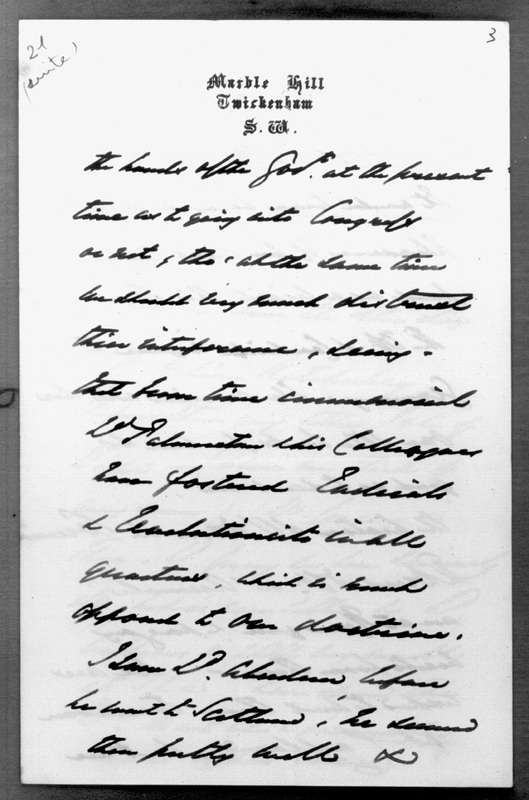 21
(suite)
3
Marble Hill
Twickenham
S. W.
the hands of the Govt. at the present
time as to going into Congress
or not, & tho' at the same time
we should very much distrust
their interference, seeing
that from time immemorial
Ld Palmerston & his Colleagues
have fostered Radicals
& Revolutionists in all
quarters, which is much
opposed to our doctrine.
I saw Ld. Aberdeen before
he went to Scotland, he seemed
then pretty well &